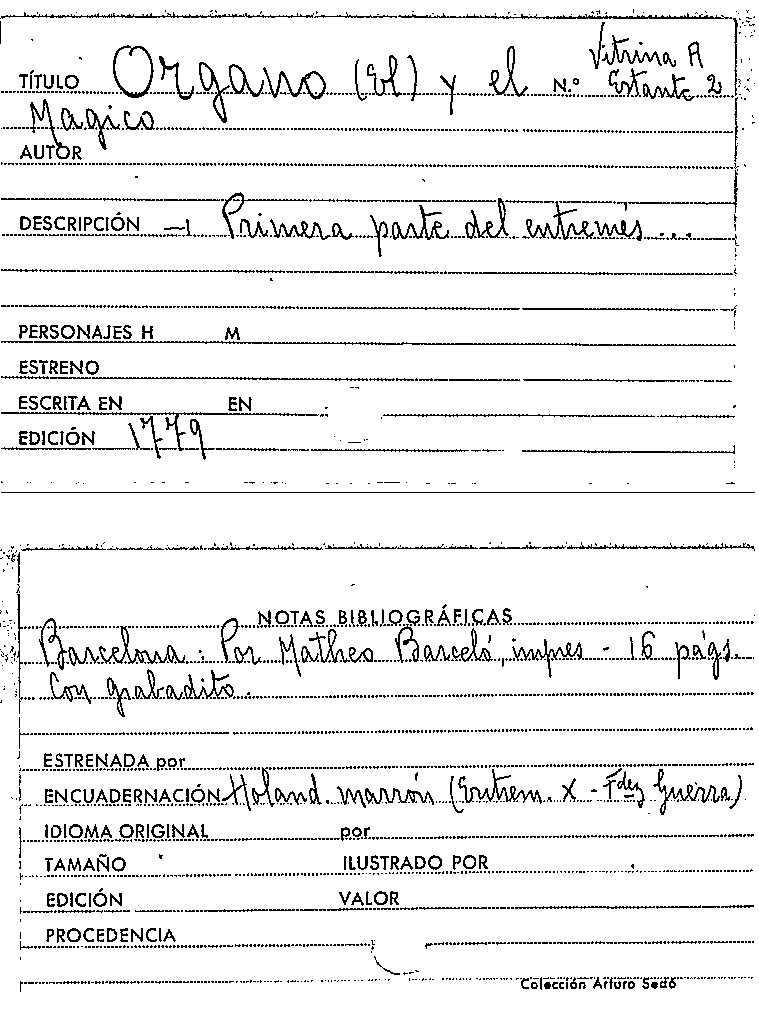 Vitrina A
TÍTULO Organo (El) y el N.º Estante 2
Magico
AUTOR
DESCRIPCIÓN — Primera parte del entremés...
PERSONAJES H M
ESTRENO
ESCRITA EN EN
EDICIÓN 1779
NOTAS BIBLIOGRÁFICAS
Barcelona: Por Matheo Barceló, impres - 16 págs.
Con grabadito.
ESTRENADA por
ENCUADERNACIÓN Holand. marrón (Entrem. X - Fdez Guerra)
IDIOMA ORIGINAL por
TAMAÑO ILUSTRADO POR
EDICIÓN VALOR
PROCEDENCIA
Colección Arturo Sedó